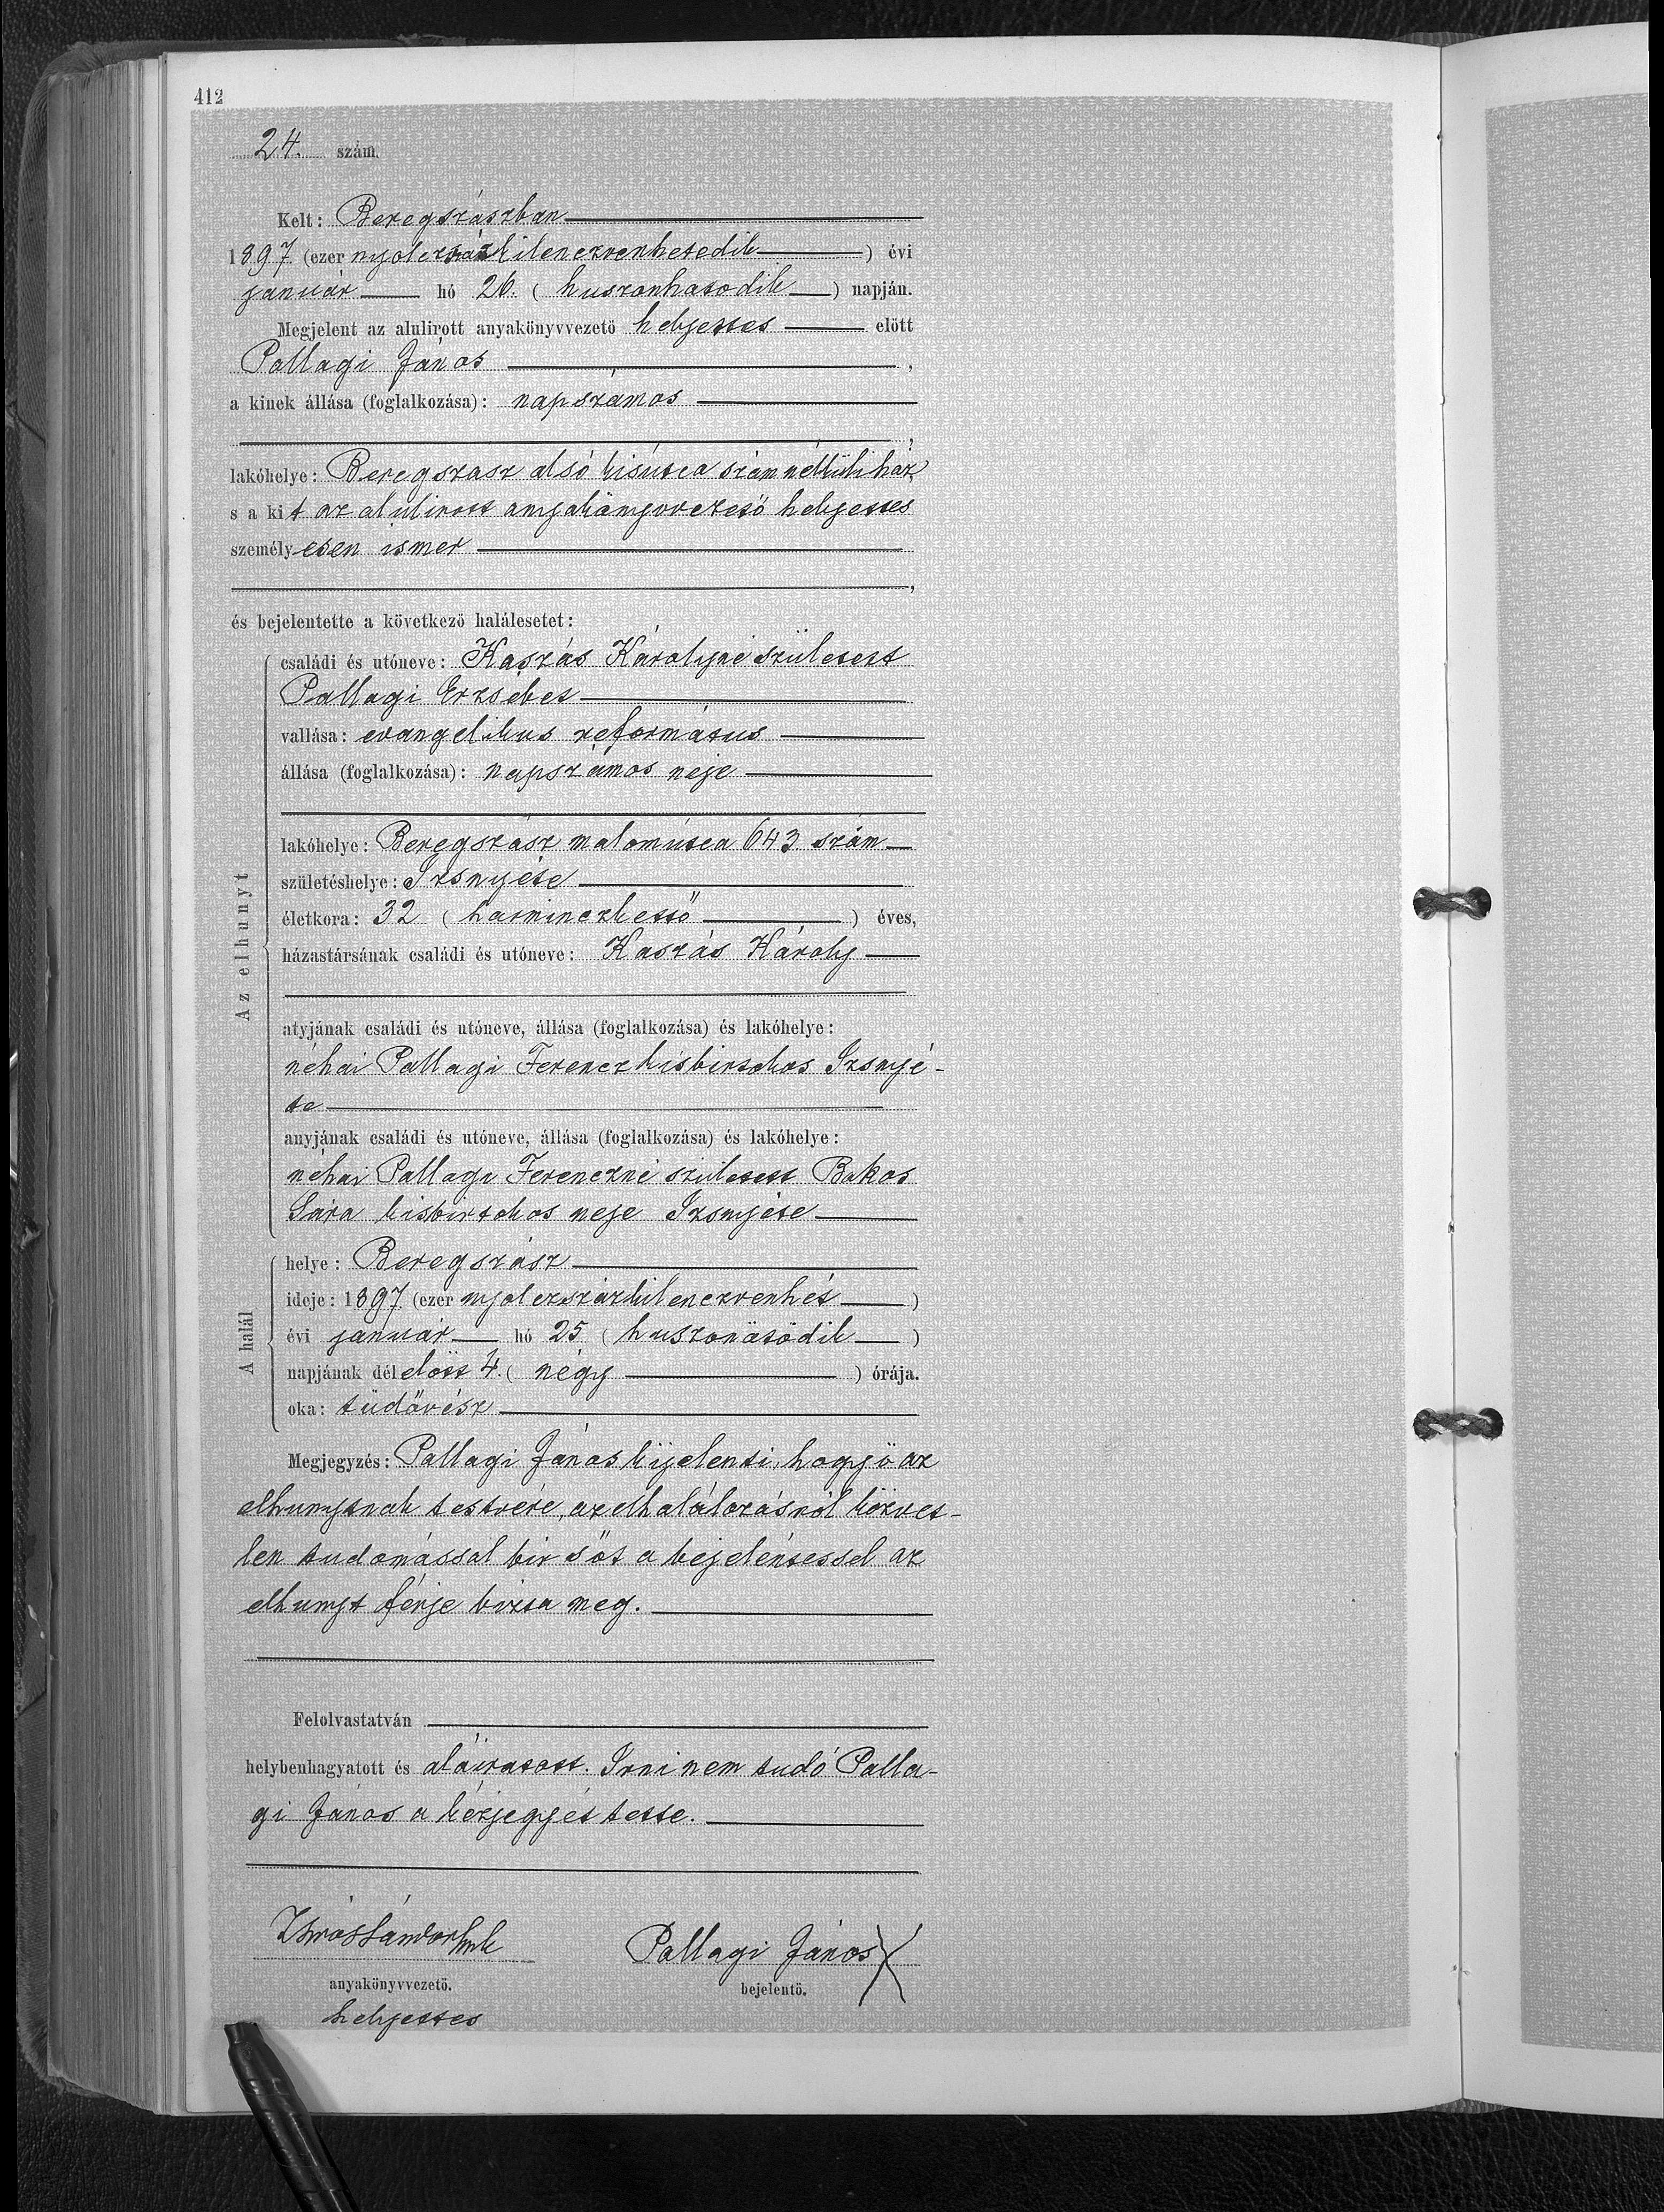 412
24. szám.
Kelt: Beregszászban
1897 (ezer nyolczszázkilenczvenhetedik) évi
január hó 26. (huszonhatodik) napján.
Megjelent az alulirott anyakönyvvezető helyettes előtt
Pallagi János,
a kinek állása (foglalkozása): napszámos
,
lakóhelye: Beregszász alsó kisútca szám nélküli ház
s a kit az alulirott anyakönyvvezető helyettes
személyesen ismer
,
és bejelentette a következő halálesetet:
Az elhunyt
családi és utóneve: Kaszás Károlyné született
Pallagi Erzsébet
vallása: evangelikus református
állása (foglalkozása): napszámos neje
lakóhelye: Beregszász malomútca 643 szám
születéshelye: Izsnyéte
életkora: 32 (harminczkettő) éves,
házastársának családi és utóneve: Kaszás Károly
atyjának családi és utóneve, állása (foglalkozása) és lakóhelye:
néhai Pallagi Ferencz kisbirtokos Izsnyé-
te
anyjának családi és utóneve, állása (foglalkozása) és lakóhelye:
néhai Pallagi Ferenczné született Bakos
Sára kisbirtokos neje Izsnyéte
A halál
helye: Beregszász
ideje: 1897 (ezer nyolczszázkilenczvenhét)
évi január hó 25 (huszonötödik)
napjának délelőtt 4. (négy) órája.
oka: tüdővész
Megjegyzés: Pallagi János kijelenti, hogy ő az
elhunytnak testvére, az elhalálozásról közvet-
len tudomással bir s őt a bejelentéssel az
elhunyt férje bizta meg.
Felolvastatván
helybenhagyatott és aláiratott. Irni nem tudó Palla-
gi János a kézjegyét tette.
Pallagi János X
anyakönyvvezető. bejelentő.
helyettes